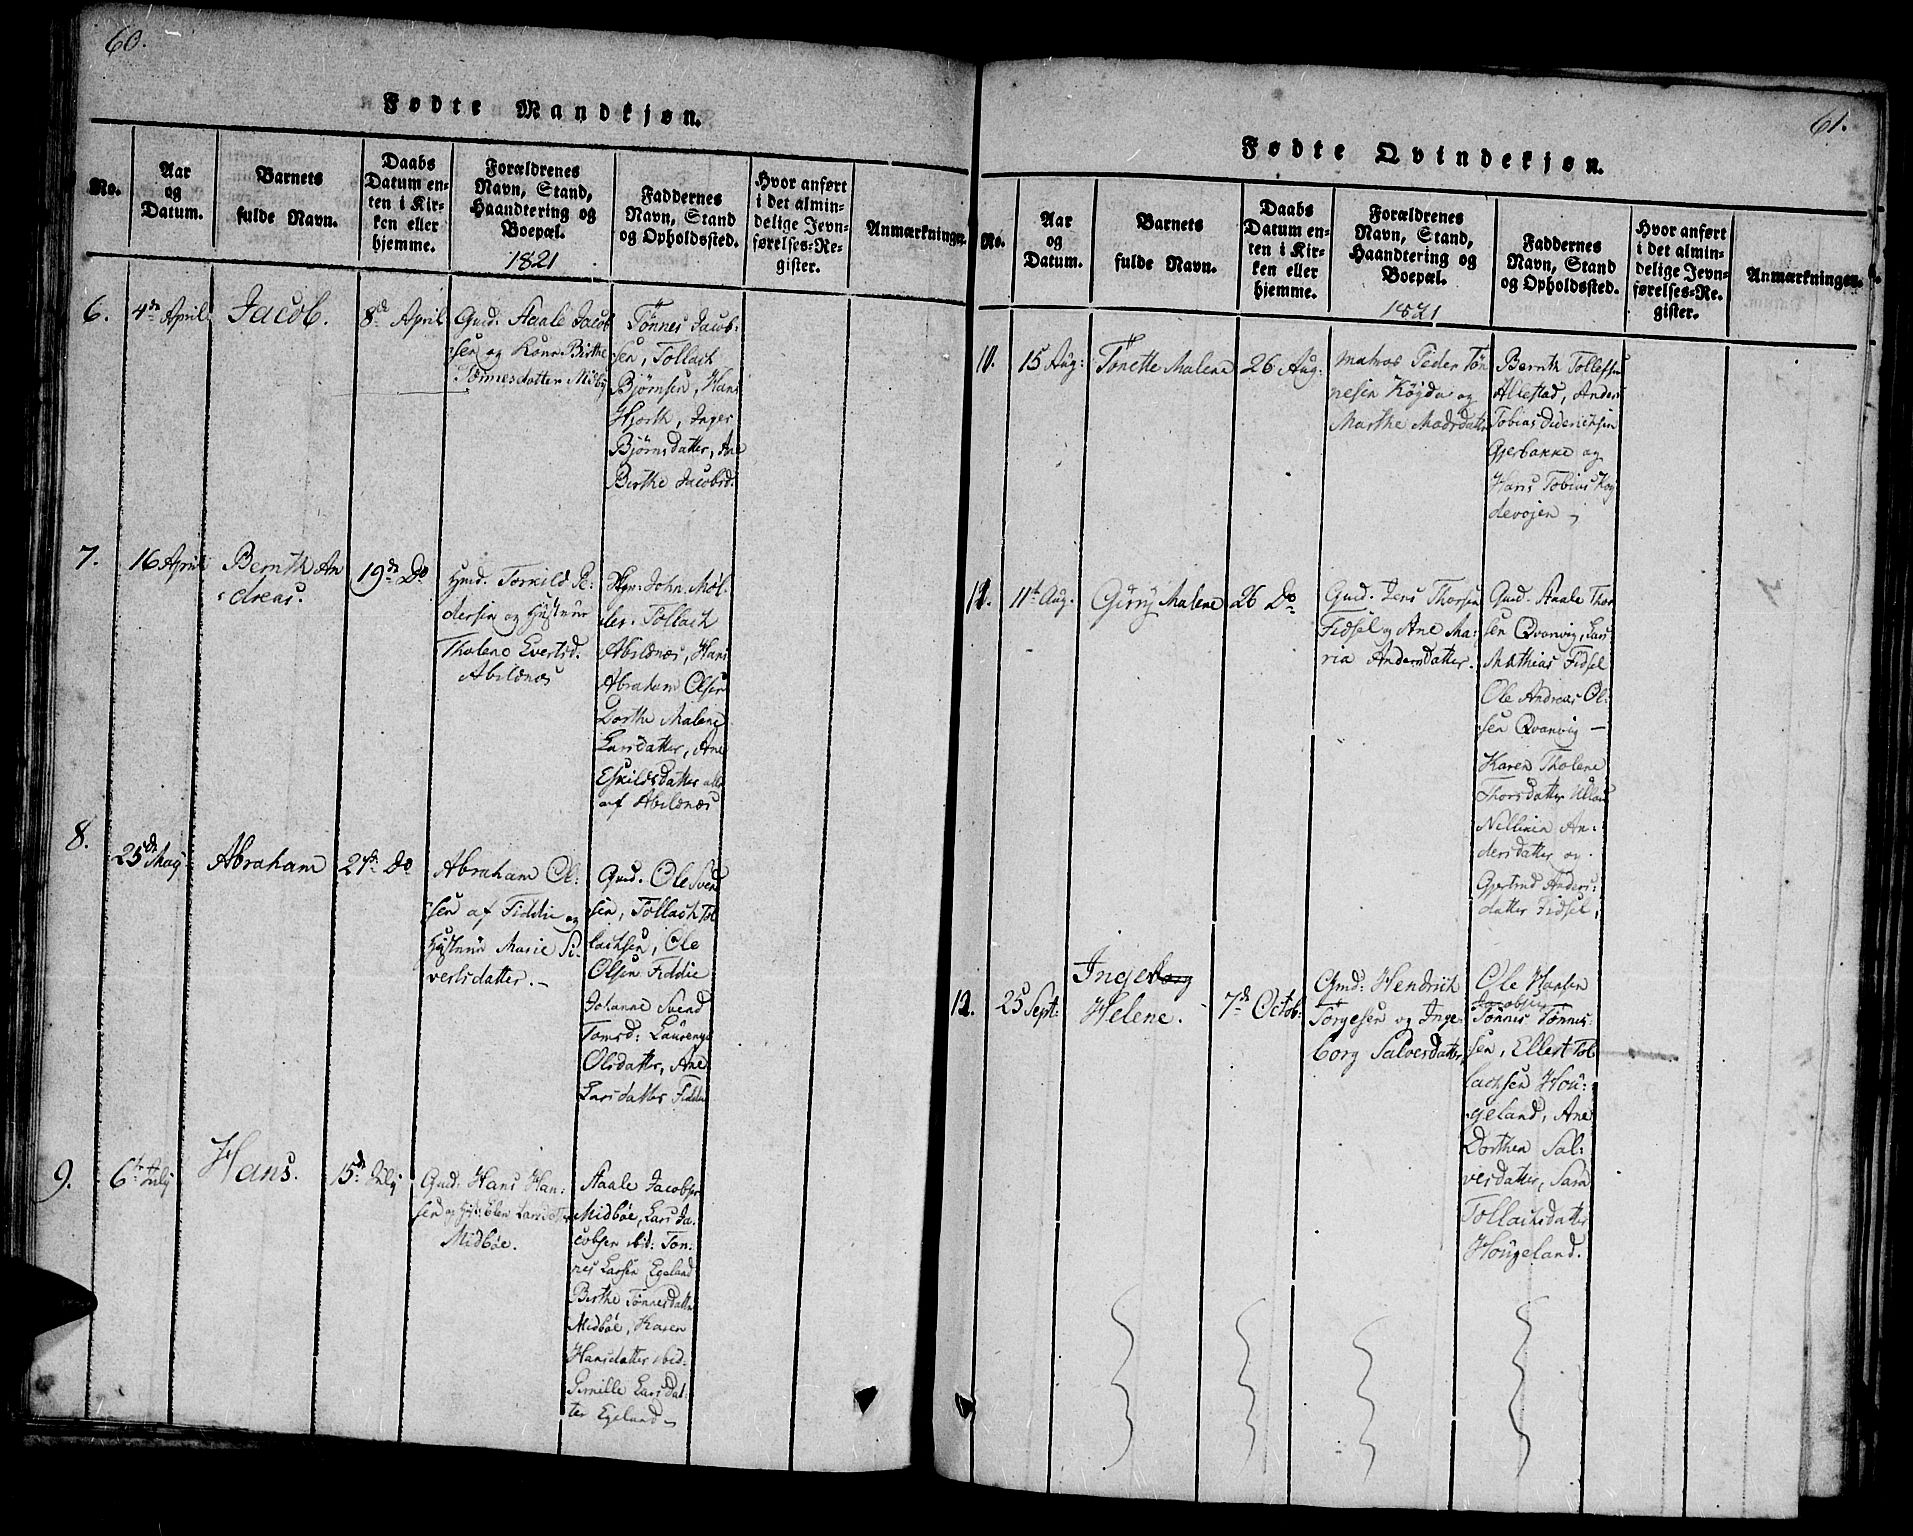 60.
Fødte Mandkjøn.
No.
Aar
og
Datum.
Barnets
fulde Navn.
Daabs
Datum en-
ten i Kir-
ken eller
hjemme.
Forældrenes
Navn, Stand,
Haandtering og
Boepæl.
1821
Faddernes
Navn, Stand
og Opholdssted.
Hvor anført
i det almin-
delige Jevn-
førelses-Re-
gister.
Anmærkninger.
6.
4de April
Jacob.
8de April
Gmd: Aaale Jacob
sen og Kone Birthe
Tønnesdatter Midbö
Tönnes Jacob:
sen, Tollach
Bjørnsen, Hans
Hjorth, Inger
Bjørnsdatter, Ane
Birthe Jacobsd.
7.
16 April
Bernth An
dreas.
19de Do
Hmd. Torkild Pe-
dersen og Hustrue
Tholene Evertsd.
Abildnæs
John Möl-
ler. Tollach
Abildnæs, Hans
Abraham Olsen
Dorthe Malene
Larsdatter, Ane
Eskildsdatter alle
af Abildnæs
8.
25de Maj
Abraham
27de Do
Abraham Ol:
sen af Fiddie og
Hustrue Marie Si-
vertsdatter.-
Gmd. Ole Svend
sen, Tollach Tol
lachsen, Ole
Olsen Fiddie
Johanne Svend
Tomsd: Laurenze
Olsdatter, Ane
Larsdatter Fiddie
9.
6te Julij
Hans.
15de Julij
Gmd. Hans Han-
sen og Elen Larsdatter
Midböe.
Aaale Jacobsen
Midböe, Lars Ja-
cobsen ibid: Tön-
nes Larsen Egeland
Birthe Tönnesdatter
Midböe, Karen
Hansdatter ibid-
Pernille Larsdat-
ter Egeland-
61.
Fødte Qvindekjøn.
No.
Aar
og
Datum.
Barnets
fulde Navn.
Daabs
Datum en-
ten i Kir-
ken eller
hjemme.
Forældrenes
Navn, Stand,
Haandtering og
Boepæl.
1821
Faddernes
Navn, Stand
og Opholdssted.
Hvor anført
i det almin-
delige Jevn-
førelses-Re-
gister.
Anmærkninger.
10.
15 Aug:
Tönette Malene
26 Aug:
matros Peder Tön
nesen Köjda og
Marthe Madsdatter
Bernth Tollefsen
Allestad, Anders
Tobias Diderichsen
Gjerbakke og
Hans Tobias Köy
devojen -
11.
11te Aug.
Gurrj Malene
26 Do
Gmd. Jens Thorsen
Fidsel og Ane Ma-
ria Andersdatter.
Gmd. Aaale Thor
sen Qvanvig, Lars
Mathias Fidsel
Ole Andreas Ol-
sen Qvanvig -
Karen Tholene
Thorsdatter
Nellinia An-
dersdatter og
Gjertrud Anders-
datter Fidsel,
12.
25 Sept:
Ingeborg
Helene.
7de Octob:
Gmd: Hendrich
Torgesen og Inge-
borg Salvesdatter
Ole Hansen
Jacobsen
Tönnes Tönnes-
sen, Ellert Tol
lachsen Hou-
geland, Ane
Dorthea Sal-
vesdatter, Sara
Tollachsdatter
Hougeland.